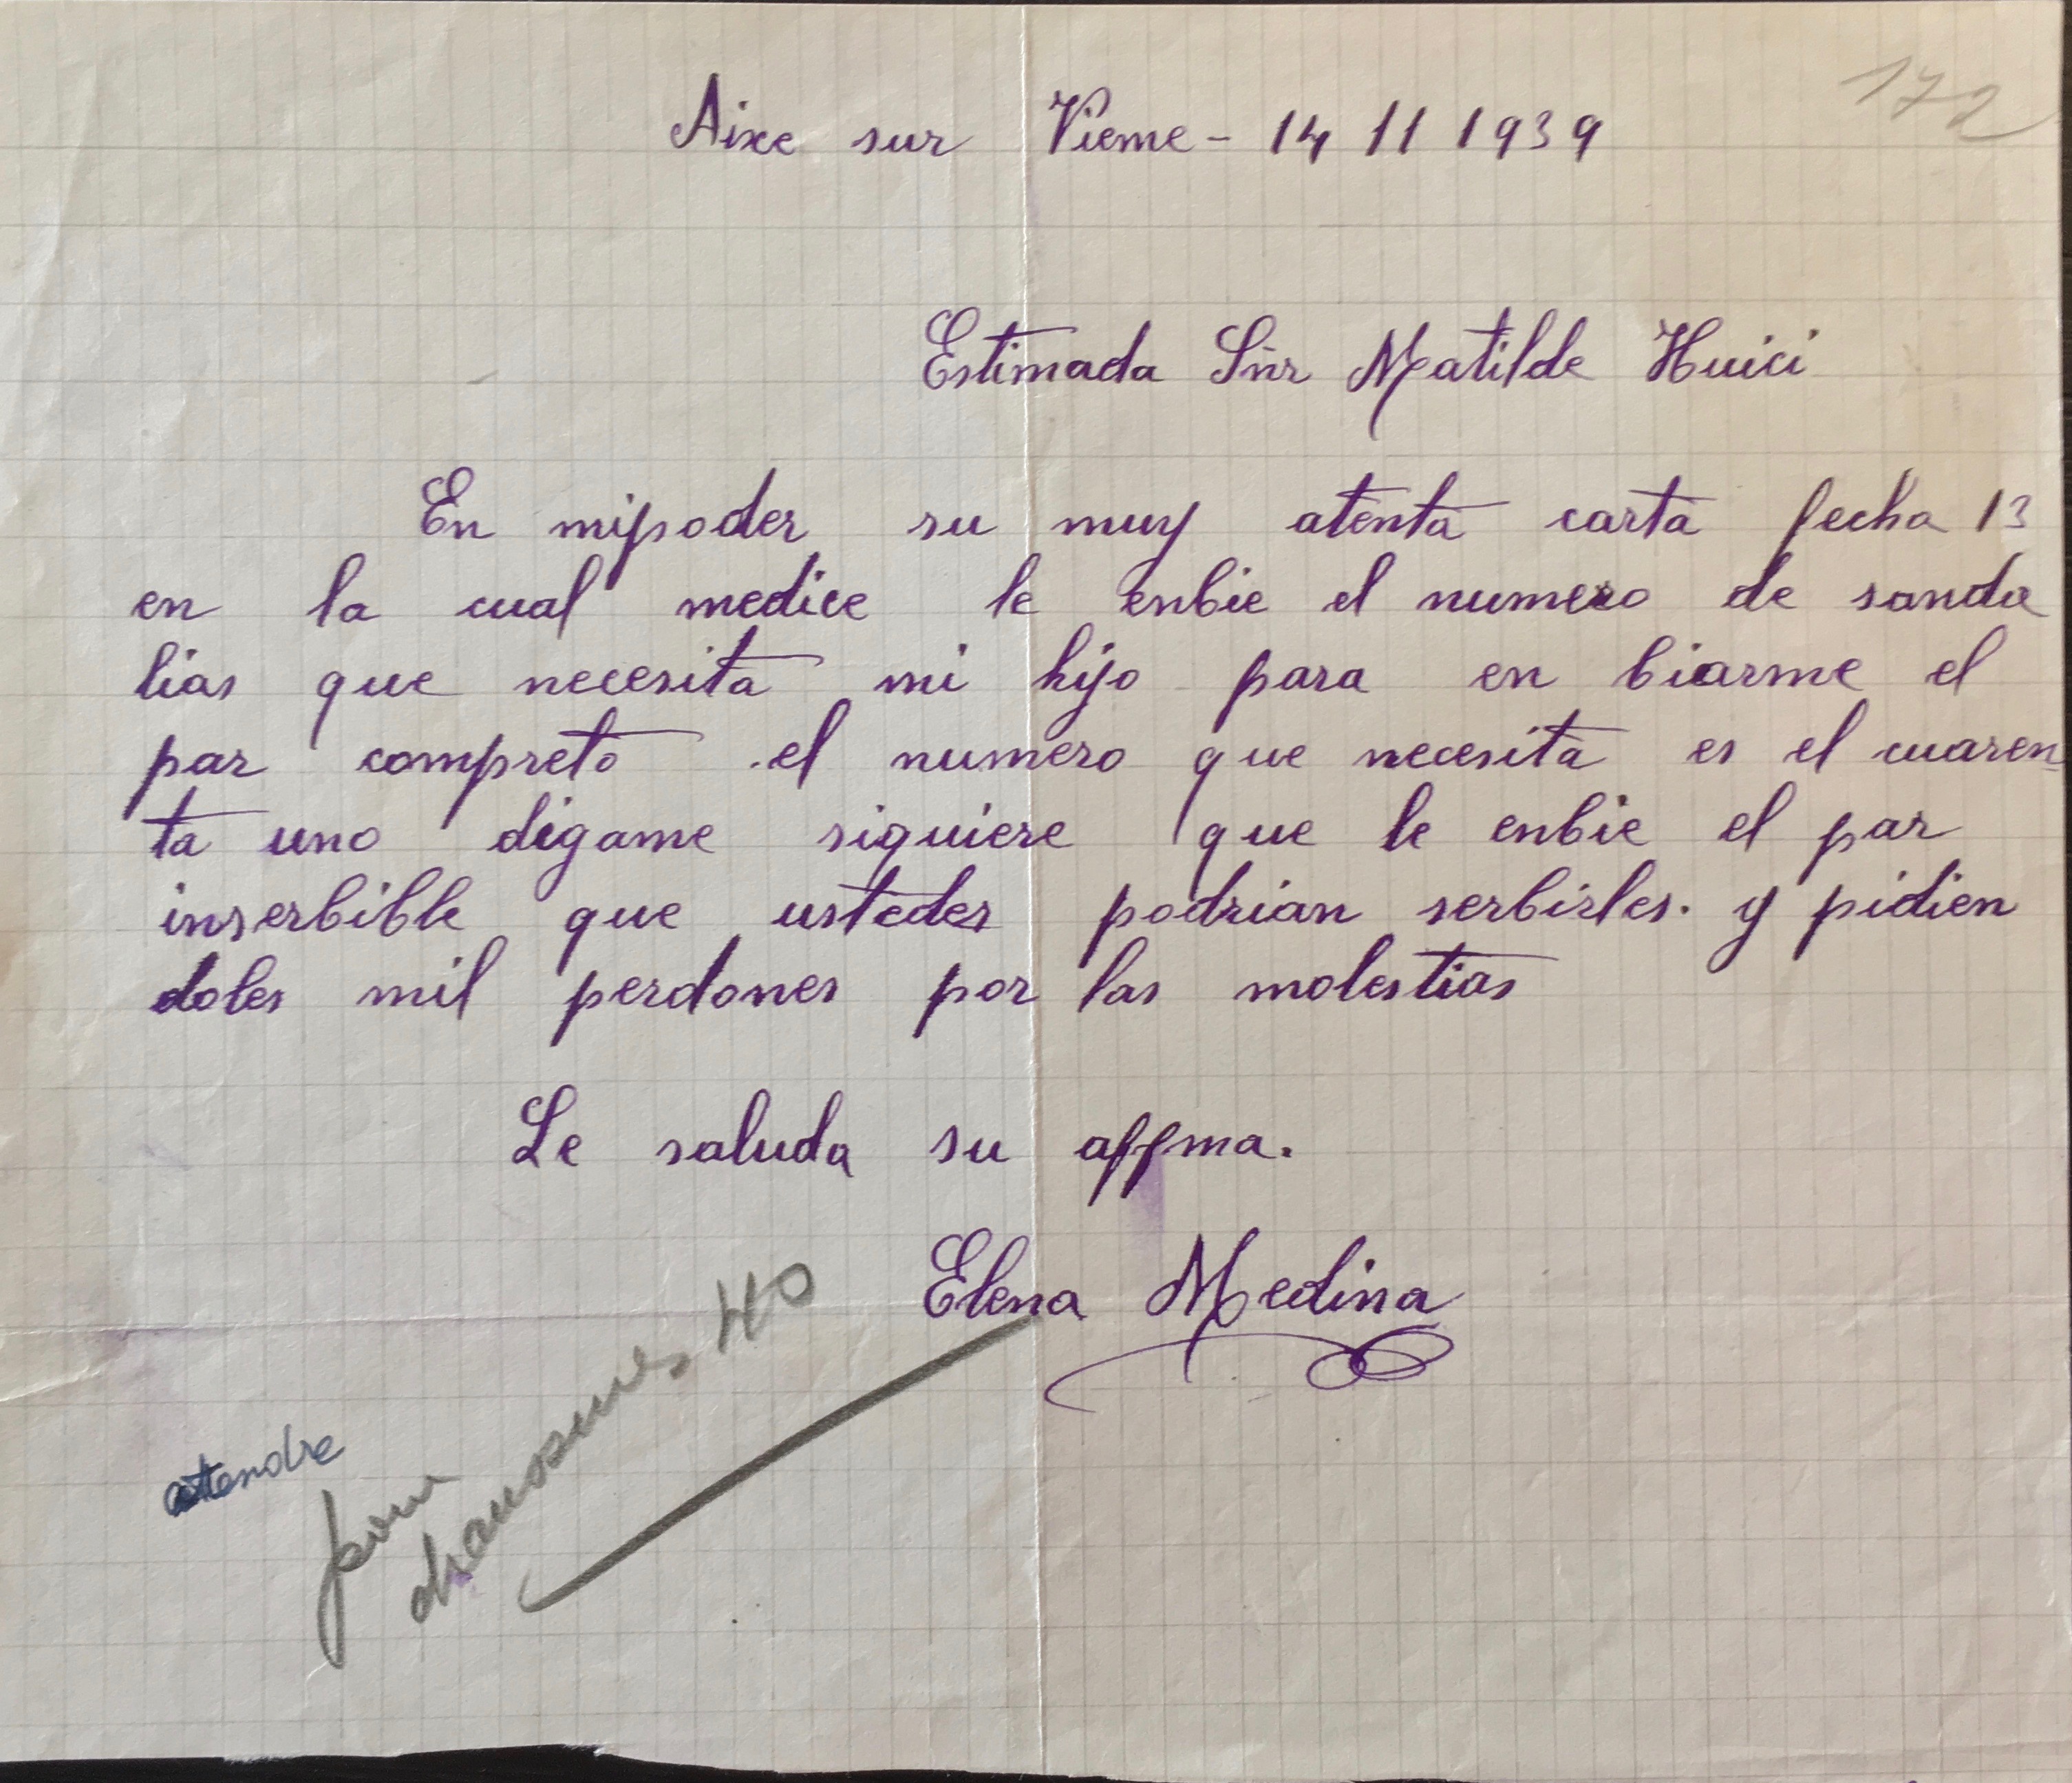 172
Aixe sur Vieme - 14 11 1939
Estimada Sñr Matilde Huici
En mipoder su muy atenta carta fecha 13
en la cual medice le enbie el numero de sanda
lias que necesita mi hijo para en biarme el
par compreto el numero que necesita es el cuaren
ta uno digame siquiere que le enbie el par
inserbible que ustedes podrian serbirles. y pidien
doles mil perdones por las molestias
Le saluda su affma.
Elena Medina
40
attendre